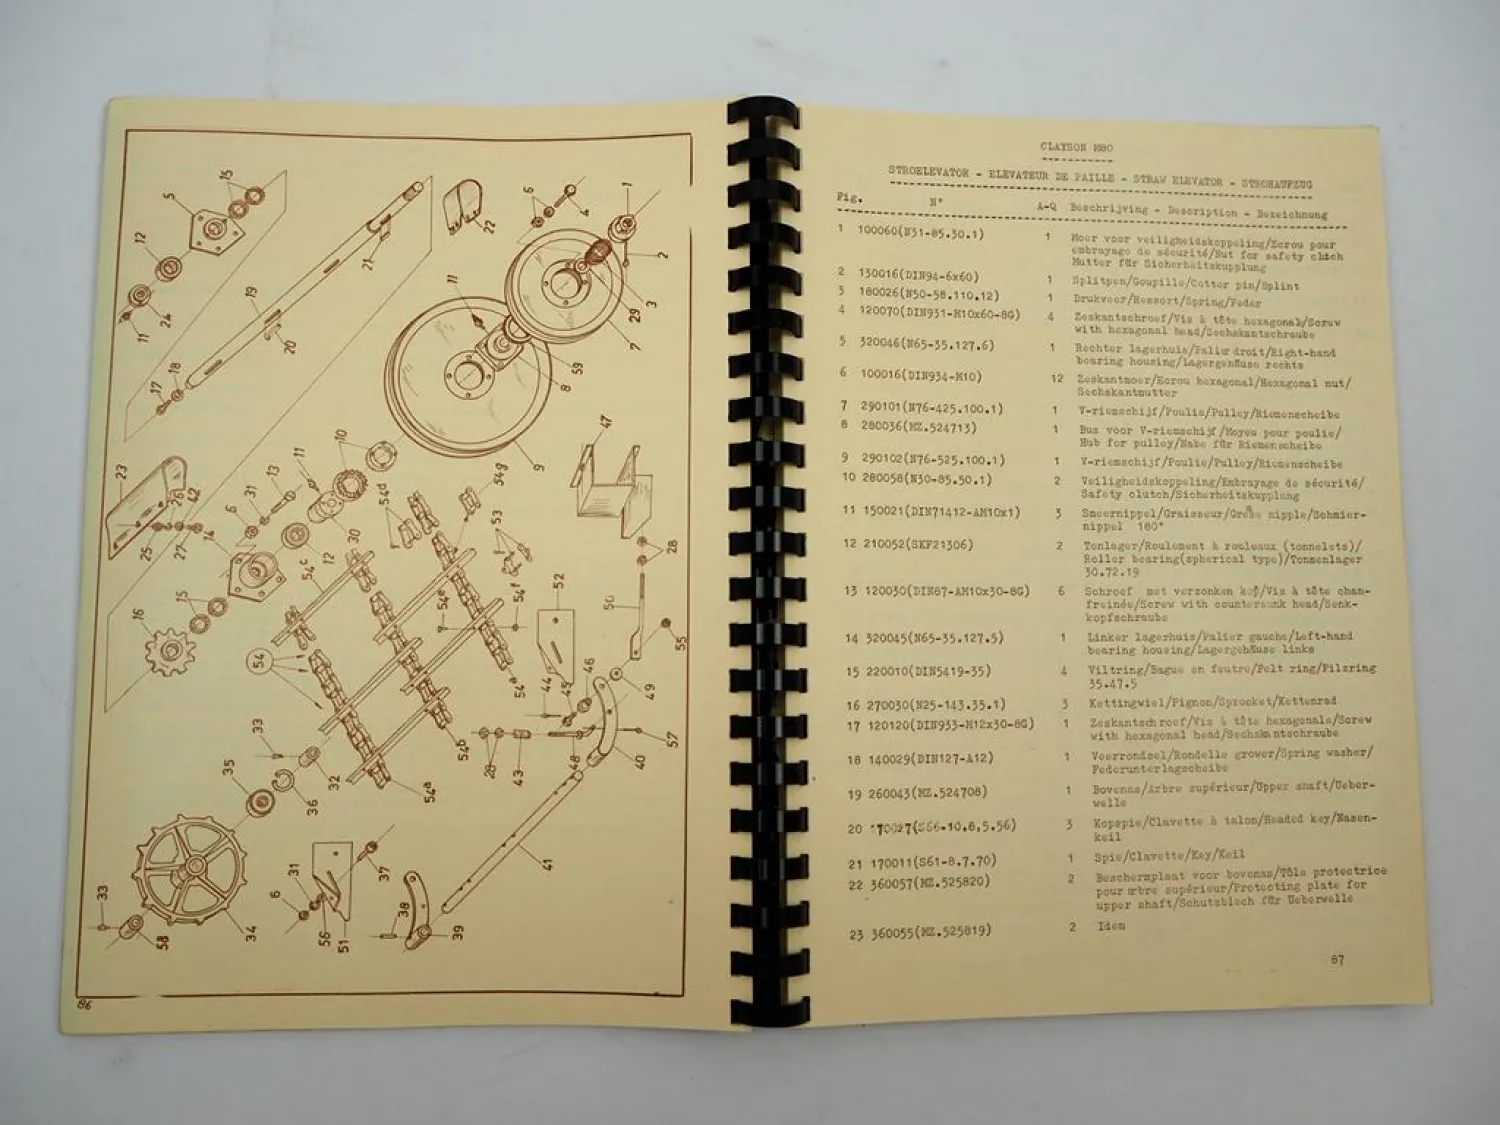 86
CLAYSON M80
STROELEVATOR - ELEVATEUR DE PAILLE - STRAW ELEVATOR - STROHAUFZUG
Fig. N° A-Q Beschrijving - Description - Bezeichnung
1 100060(N31-85.30.1) 1 Moer voor veiligheidskoppeling/Ecrou pour
embrayage de sécurité/Nut for safety clutch
Mutter für Sicherheitskupplung
2 130016(DIN94-6x60) 1 Splitpen/Goupille/Cotter pin/Splint
3 180026(N50-58.110.12) 1 Drukveer/Ressort/Spring/Feder
4 120070(DIN931-M10x60-8G) 4 Zeskantschroef/Vis à tête hexagonale/Screw
with hexagonal head/Sechskantschraube
5 320046(N65-35.127.6) 1 Rechter lagerhuis/Palier droit/Right-hand
bearing housing/Lagergehäuse rechts
6 100016(DIN934-M10) 12 Zeskantmoer/Ecrou hexagonal/Hexagonal nut/
Sechskantmutter
7 290101(N76-425.100.1) 1 V-riemschijf/Poulie/Pulley/Riemenscheibe
8 280036(MZ.524713) 1 Bus voor V-riemschijf/Moyeu pour poulie/
Hub for pulley/Nabe für Riemenscheibe
9 290102(N76-525.100.1) 1 V-riemschijf/Poulie/Pulley/Riemenscheibe
10 280058(N30-85.50.1) 2 Veiligheidskoppeling/Embrayage de sécurité/
Safety clutch/Sicherheitskupplung
11 150021(DIN71412-AM10x1) 3 Smeernippel/Graisseur/Grease nipple/Schmier-
nippel 180°
12 210052(SKF21306) 2 Tonlager/Roulement à rouleaux (tonnelets)/
Roller bearing(spherical type)/Tonnenlager
30.72.19
13 120030(DIN87-AM10x30-8G) 6 Schroef met verzonken kop/Vis à tête chan-
freinée/Screw with countersunk head/Senk-
kopfschraube
14 320045(N65-35.127.5) 1 Linker lagerhuis/Palier gauche/Left-hand
bearing housing/Lagergehäuse links
15 220010(DIN5419-35) 4 Viltring/Bague en feutre/Felt ring/Filzring
35.47.5
16 270030(N25-143.35.1) 3 Kettingwiel/Pignon/Sprocket/Kettenrad
17 120120(DIN933-M12x30-8G) 1 Zeskantschroef/Vis à tête hexagonale/Screw
with hexagonal head/Sechskantschraube
18 140029(DIN127-A12) 1 Veerrondsel/Rondelle grower/Spring washer/
Federunterlagscheibe
19 260043(MZ.524708) 1 Bovenas/Arbre supérieur/Upper shaft/Ueber-
welle
20 170027(S66-10.8,5.56) 3 Kopspie/Clavette à talon/Headed key/Nasen-
keil
21 170011(S61-8.7.70) 1 Spie/Clavette/Key/Keil
22 360057(MZ.525820) 2 Beschermplaat voor bovenas/Tôle protectrice
pour arbre supérieur/Protecting plate for
upper shaft/Schutzblech für Ueberwelle
23 360055(MZ.525819) 2 Idem
87